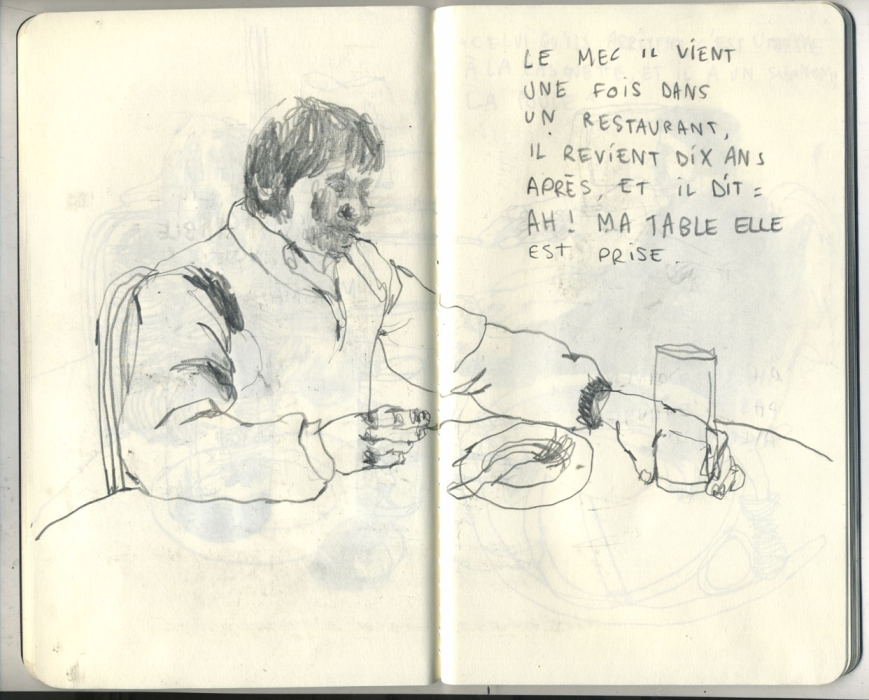 LE MEC IL VIENT
UNE FOIS DANS
UN RESTAURANT,
IL REVIENT DIX ANS
APRÈS, ET IL DIT :
AH ! MA TABLE ELLE
EST PRISE.